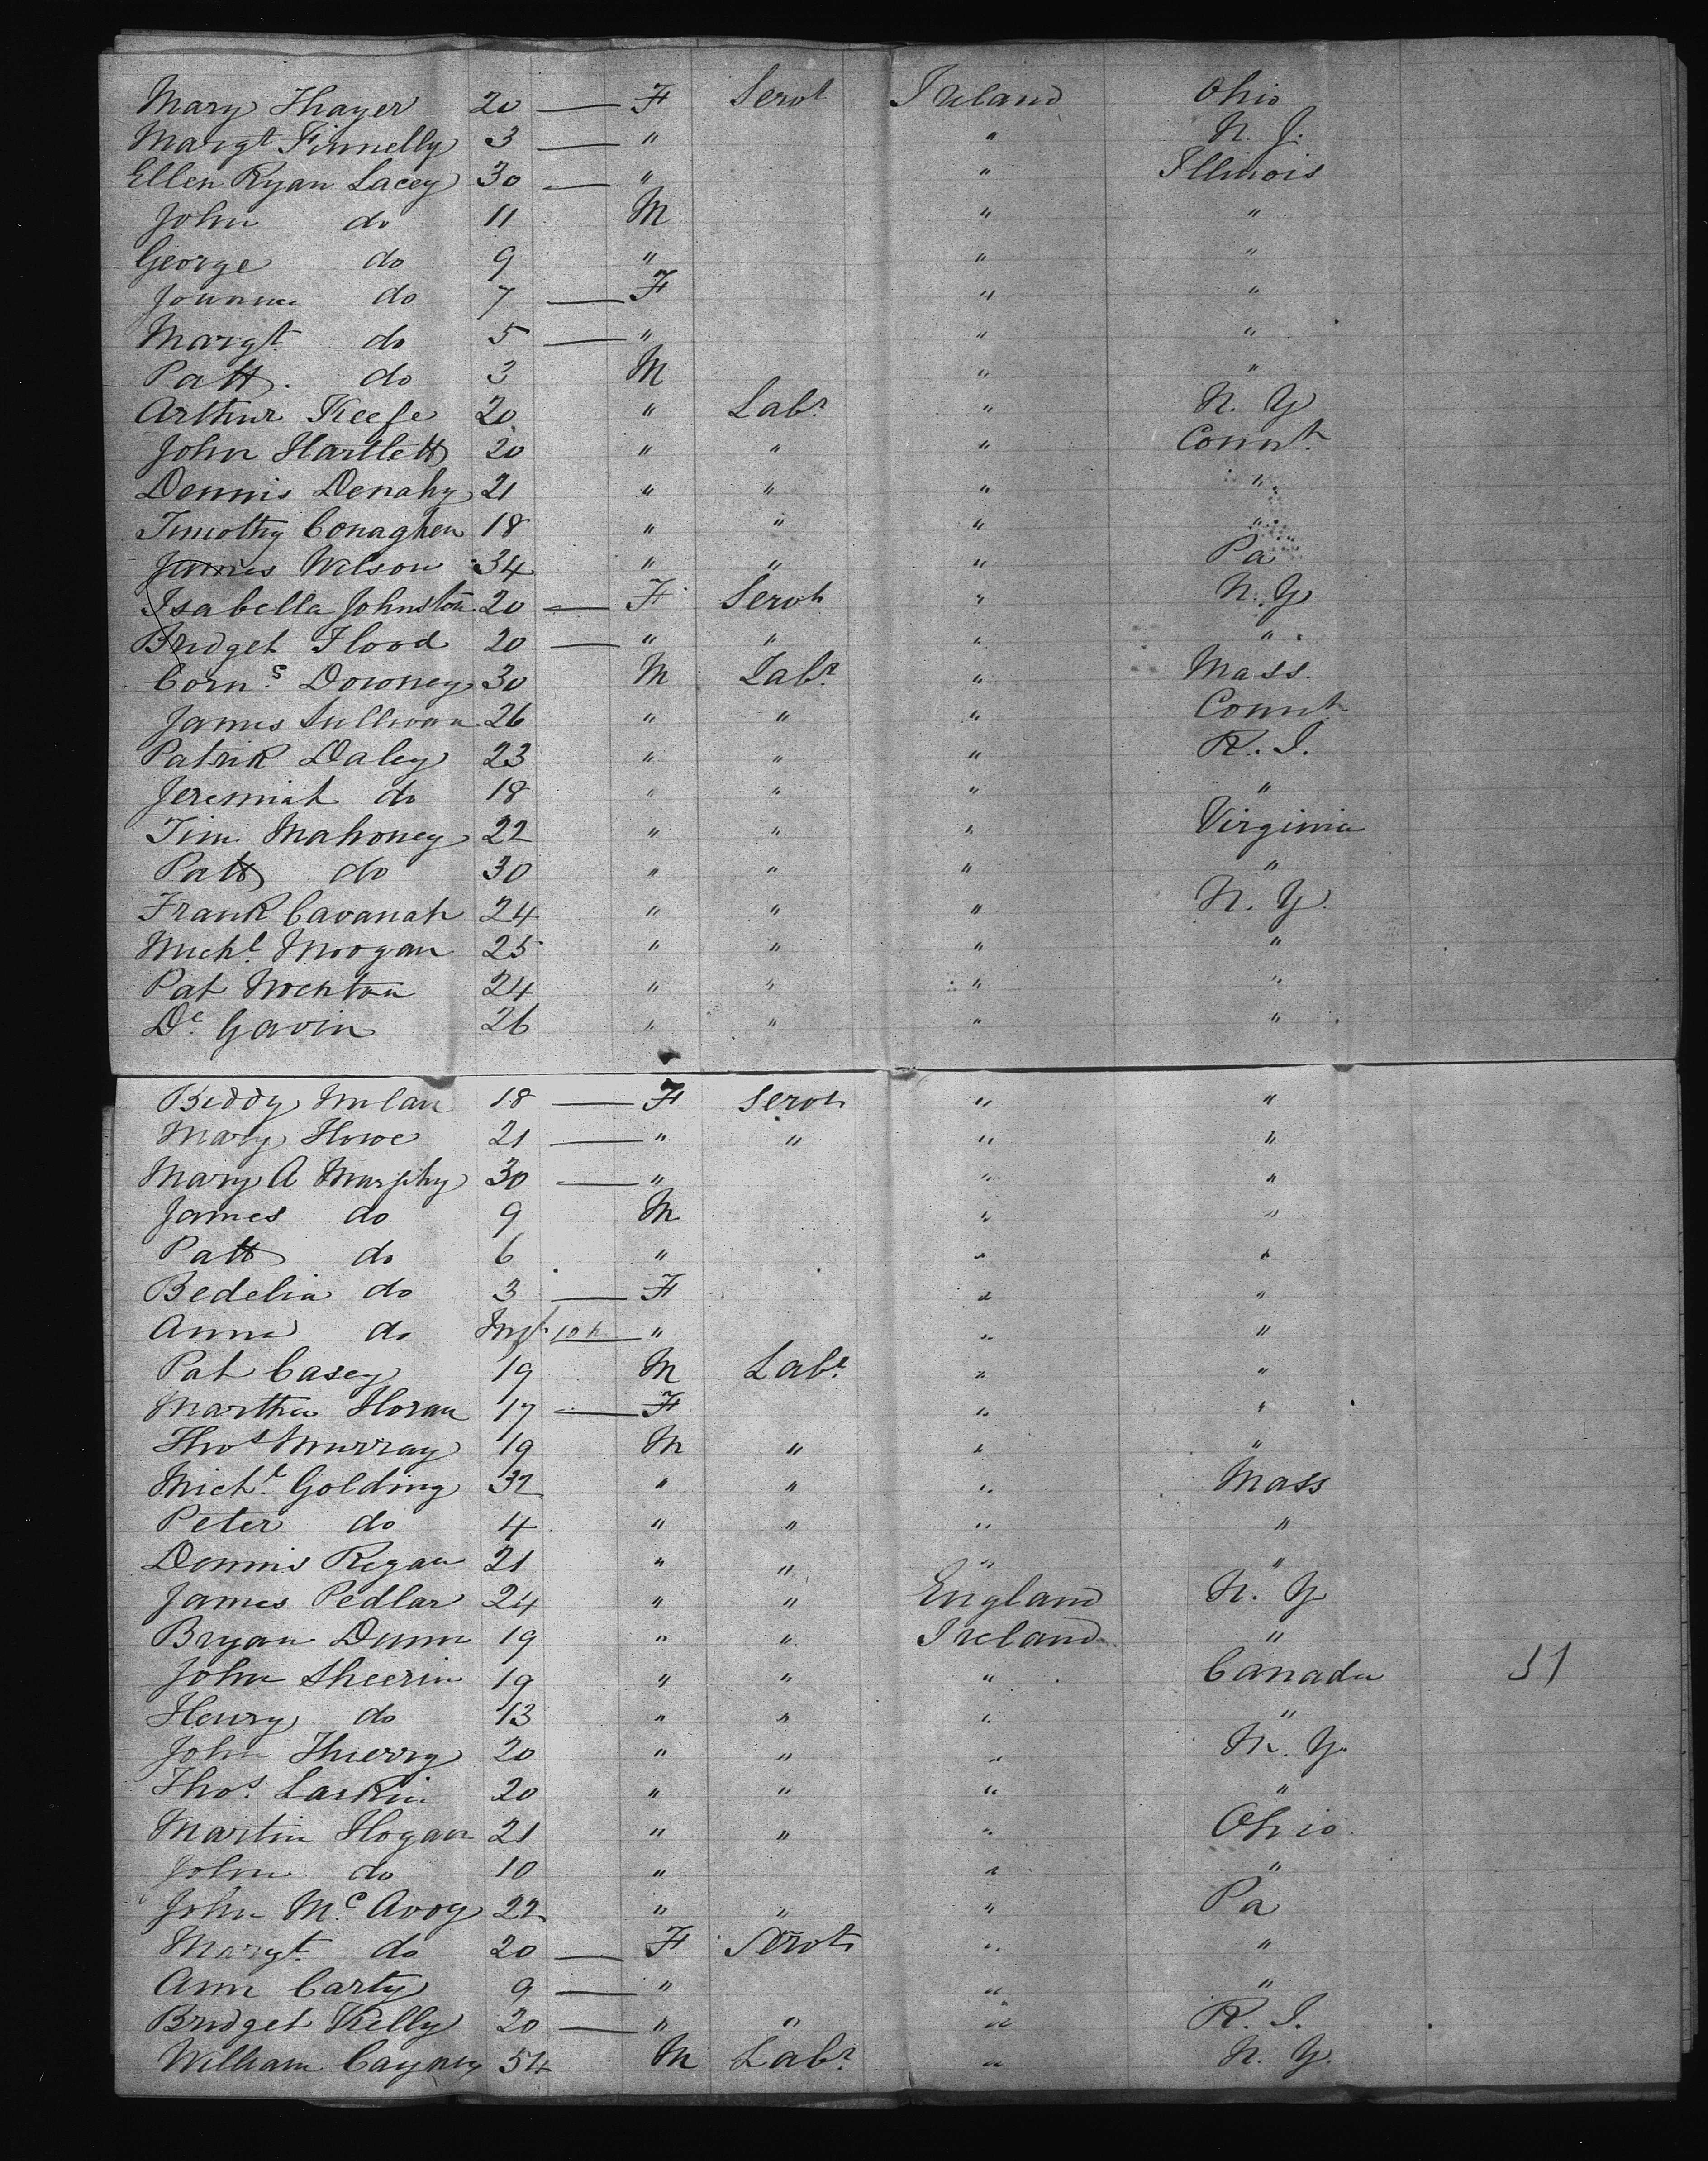 Mary Thayer 20 — F Servt Ireland Ohio
Margt Finnelly 3 — " " N. J.
Ellen Ryan Lacey 30 — " " Illinois
John do 11 M " "
George do 9 " " "
Joanna do 7 — F " "
Margt do 5 — " " "
Patk. do 3 M " "
Arthur Keefe 20 " Labr " N. Y
John Hartlett 20 " " " Connt.
Dennis Denahy 21 " " " "
Timothy Conaghen 18 " " " "
James Wilson 34 " " " Pa
Isabella Johnston 20 — F Servt " N. Y
Bridget Flood 20 — " " " "
Corns. Downey 30 M Labr " Mass.
James Sullivan 26 " " " Connt
Patrik Daley 23 " " " R. I.
Jeremiah do 18 " " " "
Tim Mahoney 22 " " " Virginia
Patk do 30 " " " "
Frank Cavanah 24 " " " N. Y.
Michl. Moogan 25 " " " "
Pat 24 " " " "
Dc. Gavin 26 " " " "
Biddy Nolan 18 — F Servt " "
Mary Howe 21 — " " " "
Mary A Murphy 30 — " " "
James do 9 M " "
Patk do 6 " " "
Bedelia do 3 — F " "
Anna do Inft — " " "
Pat Casey 19 M Labr " "
Martha Horan 17 — F " "
Thos Murray 19 M " " "
Michl. Golding 32 " " " Mass
Peter do 4 " " " "
Dennis Regan 21 " " " "
James Pedlar 24 " " England N. Y
Bryan Dunn 19 " " Ireland "
John Sheerin 19 " " " Canada 51
Henry do 13 " " " "
John Thierry 20 " " " N. Y.
Thos. Larkin 20 " " " "
Martin Hogan 21 " " " Ohio
John do 10 " " "
John Mc. Avoy 22 " " " Pa
Margt do 20 — F Servt " "
Ann Carty 9 — " " "
Bridget Kelly 20 — " " " R. I.
William 54 M Labr. " N. Y.